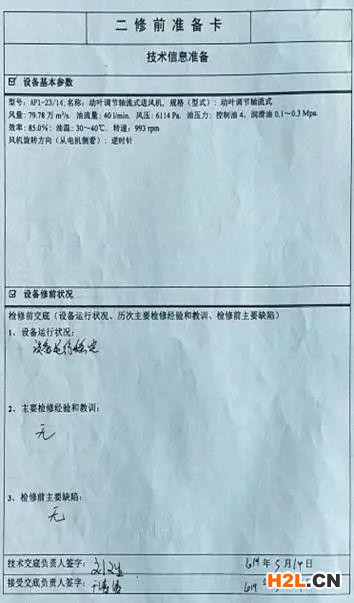 二修前准备卡
技术信息准备
☑ 设备基本参数
型号: AP1-23/14; 名称: 动叶调节轴流式送风机, 规格（型式）: 动叶调节轴流式
风量: 79.78 万 m³/s. 油流量: 40 l/min. 风压: 6114 Pa. 油压力: 控制油 4, 润滑油 0.1~0.3 Mpa.
效率: 85.0%; 油温: 30~40℃. 转速: 993 rpm
风机旋转方向（从电机侧看）: 逆时针
☑ 设备修前状况
检修前交底（设备运行状况、历次主要检修经验和教训、检修前主要缺陷）
1、设备运行状况:
设备运行稳定
2、主要检修经验和教训:
无
3、检修前主要缺陷:
无
技术交底负责人签字: 年 5 月 14 日
接受交底负责人签字: 年
H2L.CN